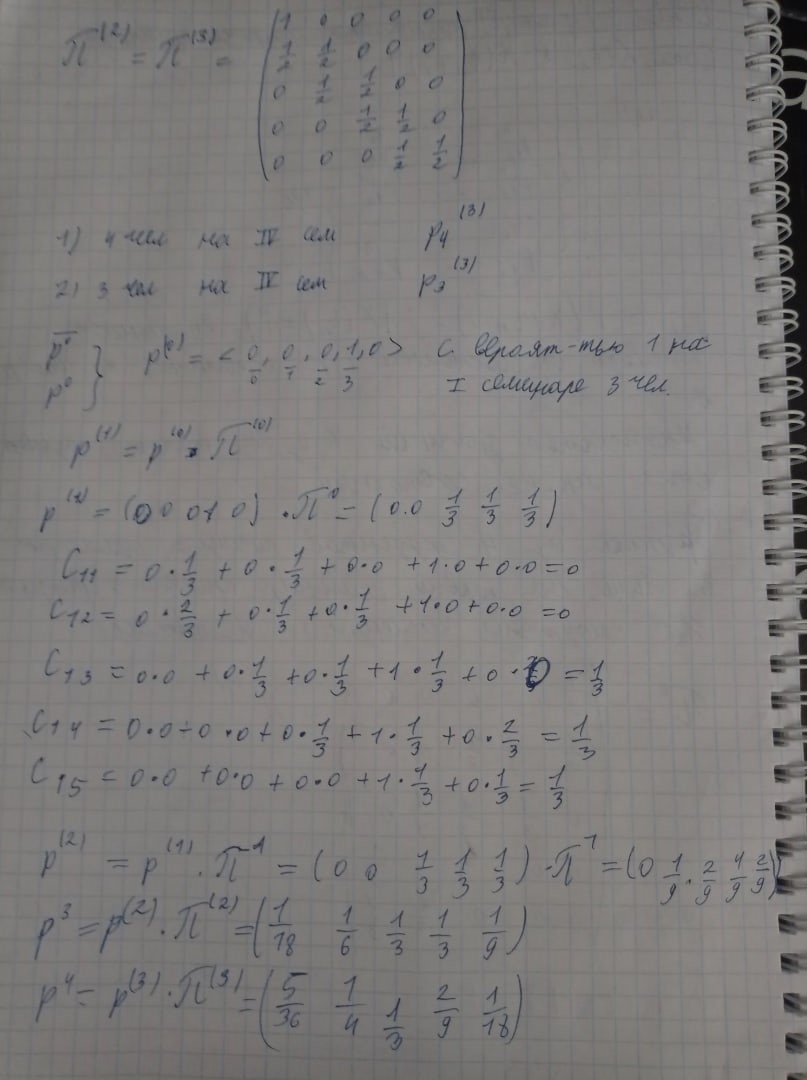 П⁽²⁾ = П⁽³⁾ = 
1 0 0 0 0
1/2 1/2 0 0 0
0 1/2 1/2 0 0
0 0 1/2 1/2 0
0 0 0 1/2 1/2
1) 4 чел на IV сем p₄⁽³⁾
2) 3 чел на IV сем p₃⁽³⁾
p̅⁰ } p⁽⁰⁾ = < 0, 0, 0, 1, 0 > с вероят-тью 1 на
p⁰ 0 1 2 3 I семинаре 3 чел.
p⁽¹⁾ = p⁽⁰⁾ · П⁽⁰⁾
p⁽¹⁾ = (0 0 0 1 0) · П⁰ = (0 0 1/3 1/3 1/3)
C₁₁ = 0·1/3 + 0·1/3 + 0·0 + 1·0 + 0·0 = 0
C₁₂ = 0·2/3 + 0·1/3 + 0·1/3 + 1·0 + 0·0 = 0
C₁₃ = 0·0 + 0·1/3 + 0·1/3 + 1·1/3 + 0·0 = 1/3
C₁₄ = 0·0 + 0·0 + 0·1/3 + 1·1/3 + 0·2/3 = 1/3
C₁₅ = 0·0 + 0·0 + 0·0 + 1·1/3 + 0·1/3 = 1/3
p⁽²⁾ = p⁽¹⁾ · П¹ = (0 0 1/3 1/3 1/3) · П¹ = (0 1/9 · 2/9 4/9 2/9)
p³ = p⁽²⁾ · П⁽²⁾ = (1/18 1/6 1/3 1/3 1/9)
p⁴ = p⁽³⁾ · П⁽³⁾ = (5/36 1/4 1/3 2/9 1/18)